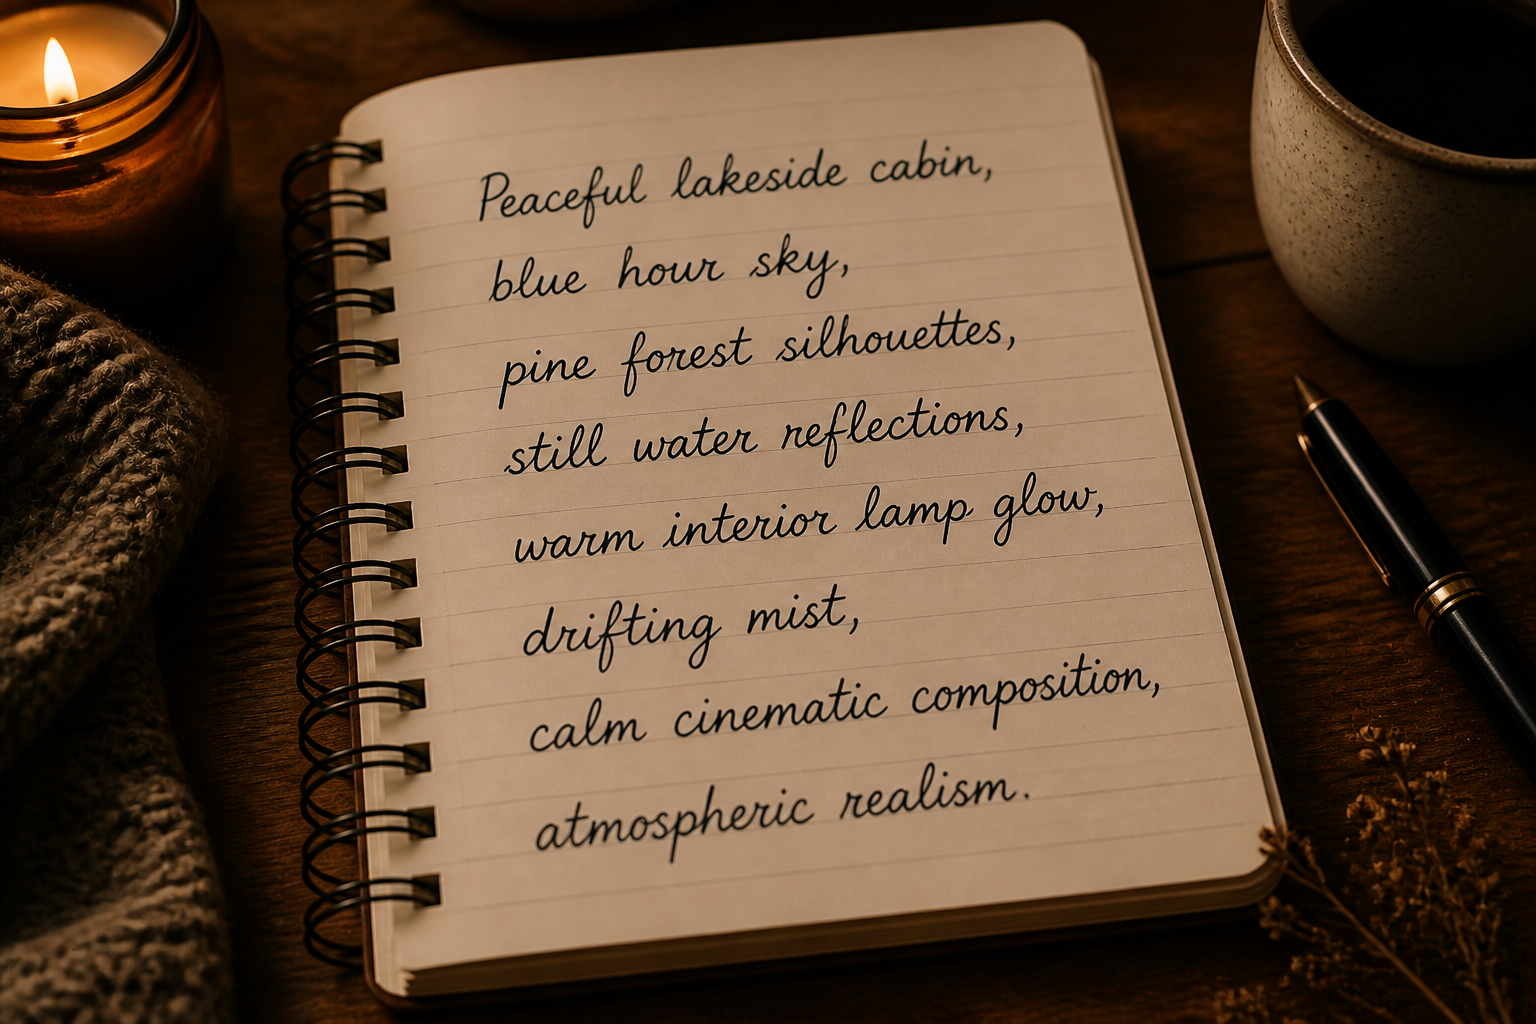 Peaceful lakeside cabin,
blue hour sky,
pine forest silhouettes,
still water reflections,
warm interior lamp glow,
drifting mist,
calm cinematic composition,
atmospheric realism.